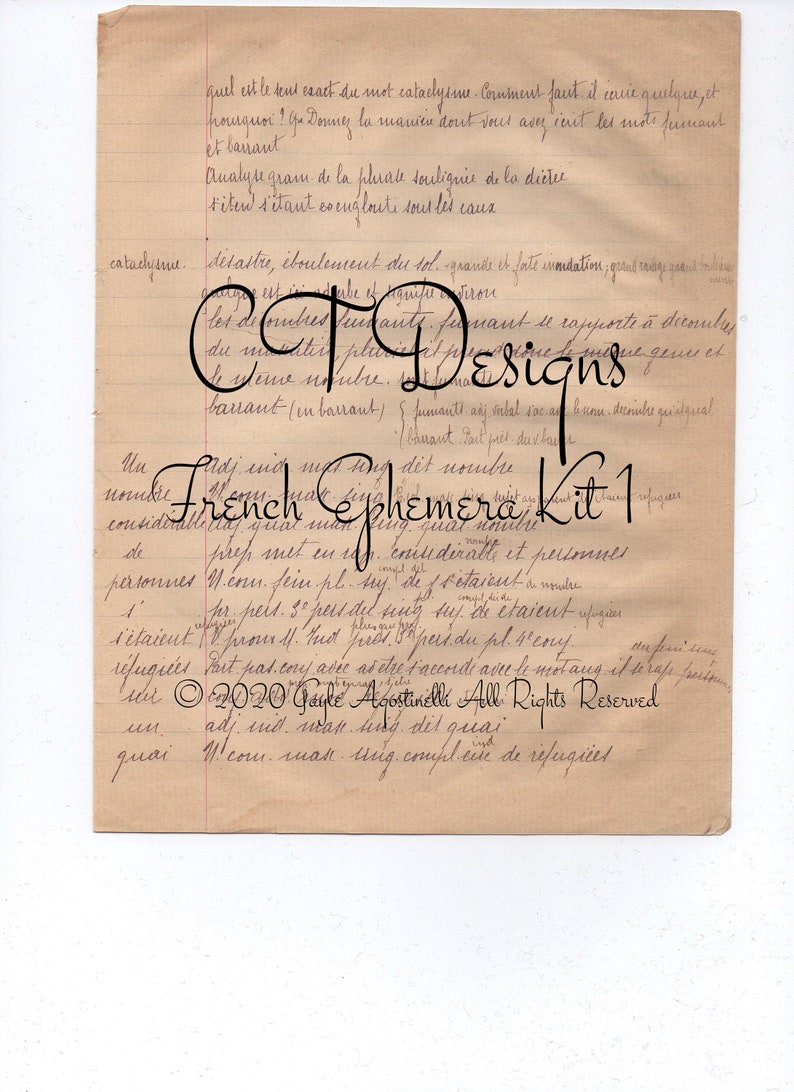 quel est le sens exact du mot cataclysme. Comment faut il écrire quelque, et
pourquoi? Donnez la manière dont vous avez écrit les mots fumant
et barrant
Analyse gram. de la phrase soulignée de la dictée
s'étant englouti sous les eaux
cataclysme. désastre, éboulement du sol. grande et forte inondation; grand ravage grand
quelque est ici adverbe et signifie environ
CTDesigns
les décombres fumants. fumant se rapporte à décombres
du masculin pluriel il prend donc le même genre et
le même nombre.
barrant (en barrant) { fumants. adj verbal s'ac. avec le nom. décombre qu'il qual
barrant. Part prés. du v. barrer
Un adj. ind. mas. sing. dét nombre
French Ephemera Kit 1
nombre N. com. masc. sing. sujet réfugiées
considérable adj. qual. mas. sing. qual nombre
de prép met en rap. considérable nombre et personnes
personnes N. com. fém. pl. compl. dét de nombre
s' pr. pers. 3e pers du sing de étaient réfugiées
s'étaient réfugiées V. pron. M. Ind plus que parf 3e pers. du pl. 4e conj
réfugiées Part pas. conj avec s'accorde avec le mot il se rap. personnes du fém
sur
© 2020 Gayle Agostinelli All Rights Reserved
un adj. ind. mas. sing. dét quai
quai N. com. mas. sing. compl. ind de réfugiées